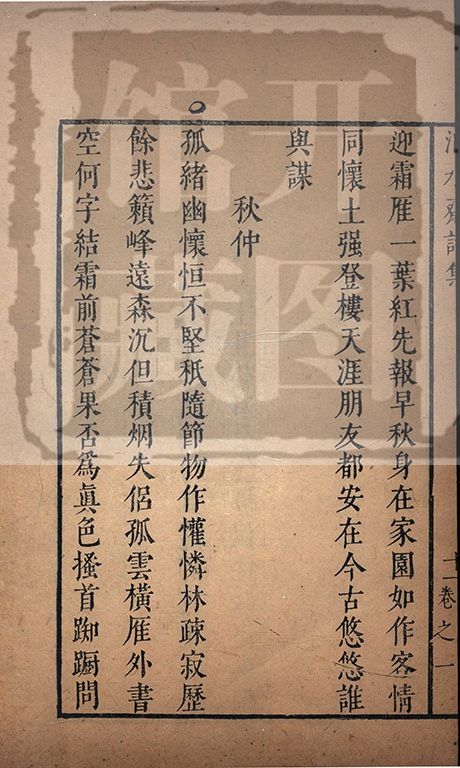 迎霜雁一葉紅先報早秋身在家園如作客情
同懷土强登樓天涯朋友都安在今古悠悠誰
與謀
秋仲
孤緒幽懷恒不堅秖隨節物作懽憐林疎寂歷
餘悲籟峰遠森沉但積烟失侶孤雲橫雁外書
空何字結霜前蒼蒼果否爲眞色搔首踟蹰問
詩集
卷之一
开图
馆藏